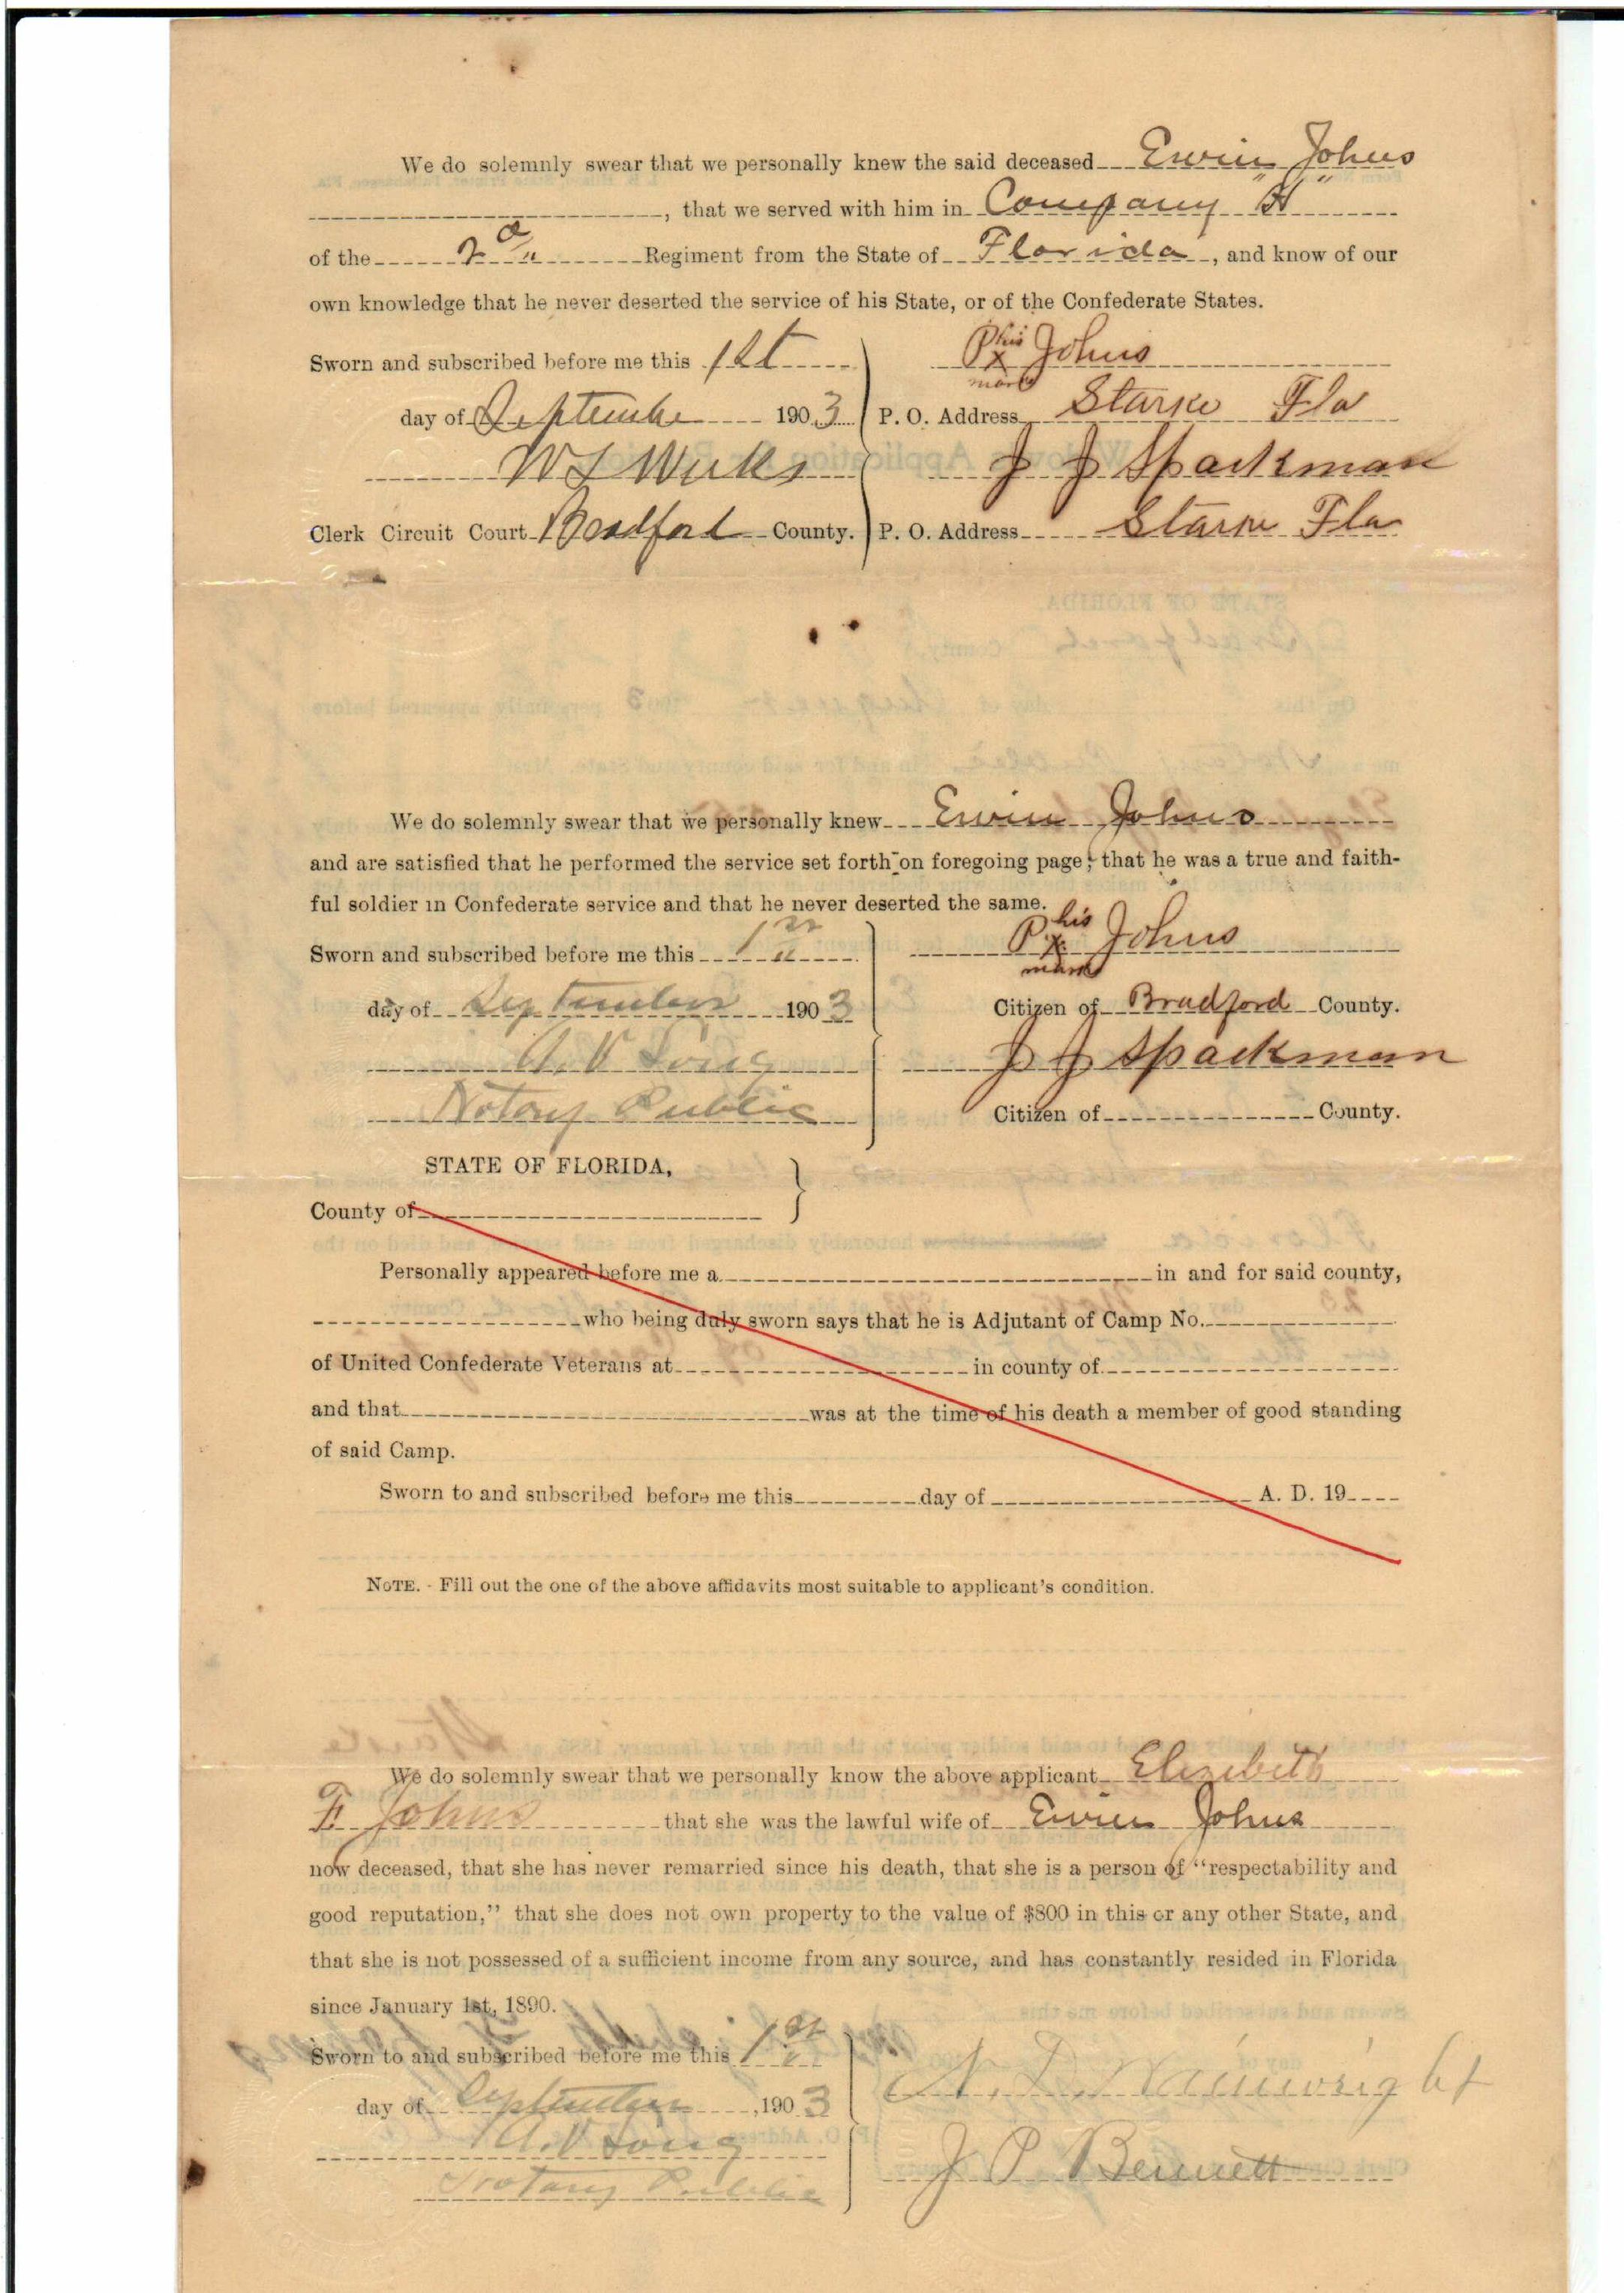 We do solemnly swear that we personally knew the said deceased Erwin Johns
, that we served with him in Company "H"
of the 2d Regiment from the State of Florida, and know of our
own knowledge that he never deserted the service of his State, or of the Confederate States.
Sworn and subscribed before me this 1st
P his x mark Johns
day of September 1903
P. O. Address Starke Fla
J J Sparkman
Clerk Circuit Court Bradford County.
P. O. Address Starke Fla
We do solemnly swear that we personally knew Erwin Johns
and are satisfied that he performed the service set forth on foregoing page; that he was a true and faith-
ful soldier in Confederate service and that he never deserted the same.
Sworn and subscribed before me this 1st
P his x mark Johns
day of September 1903
Citizen of Bradford County.
A. V. Long
J J Sparkman
Notary Public
Citizen of County.
STATE OF FLORIDA,
County of
Personally appeared before me a in and for said county,
who being duly sworn says that he is Adjutant of Camp No.
of United Confederate Veterans at in county of
and that was at the time of his death a member of good standing
of said Camp.
Sworn to and subscribed before me this day of A. D. 19
NOTE. - Fill out the one of the above affidavits most suitable to applicant's condition.
We do solemnly swear that we personally know the above applicant Elizabeth
F. Johns that she was the lawful wife of Erwin Johns
now deceased, that she has never remarried since his death, that she is a person of "respectability and
good reputation," that she does not own property to the value of $800 in this or any other State, and
that she is not possessed of a sufficient income from any source, and has constantly resided in Florida
since January 1st, 1890.
Sworn to and subscribed before me this 1st
day of September, 1903
Wainwright
A. V. Long
J P Bennett
Notary Public